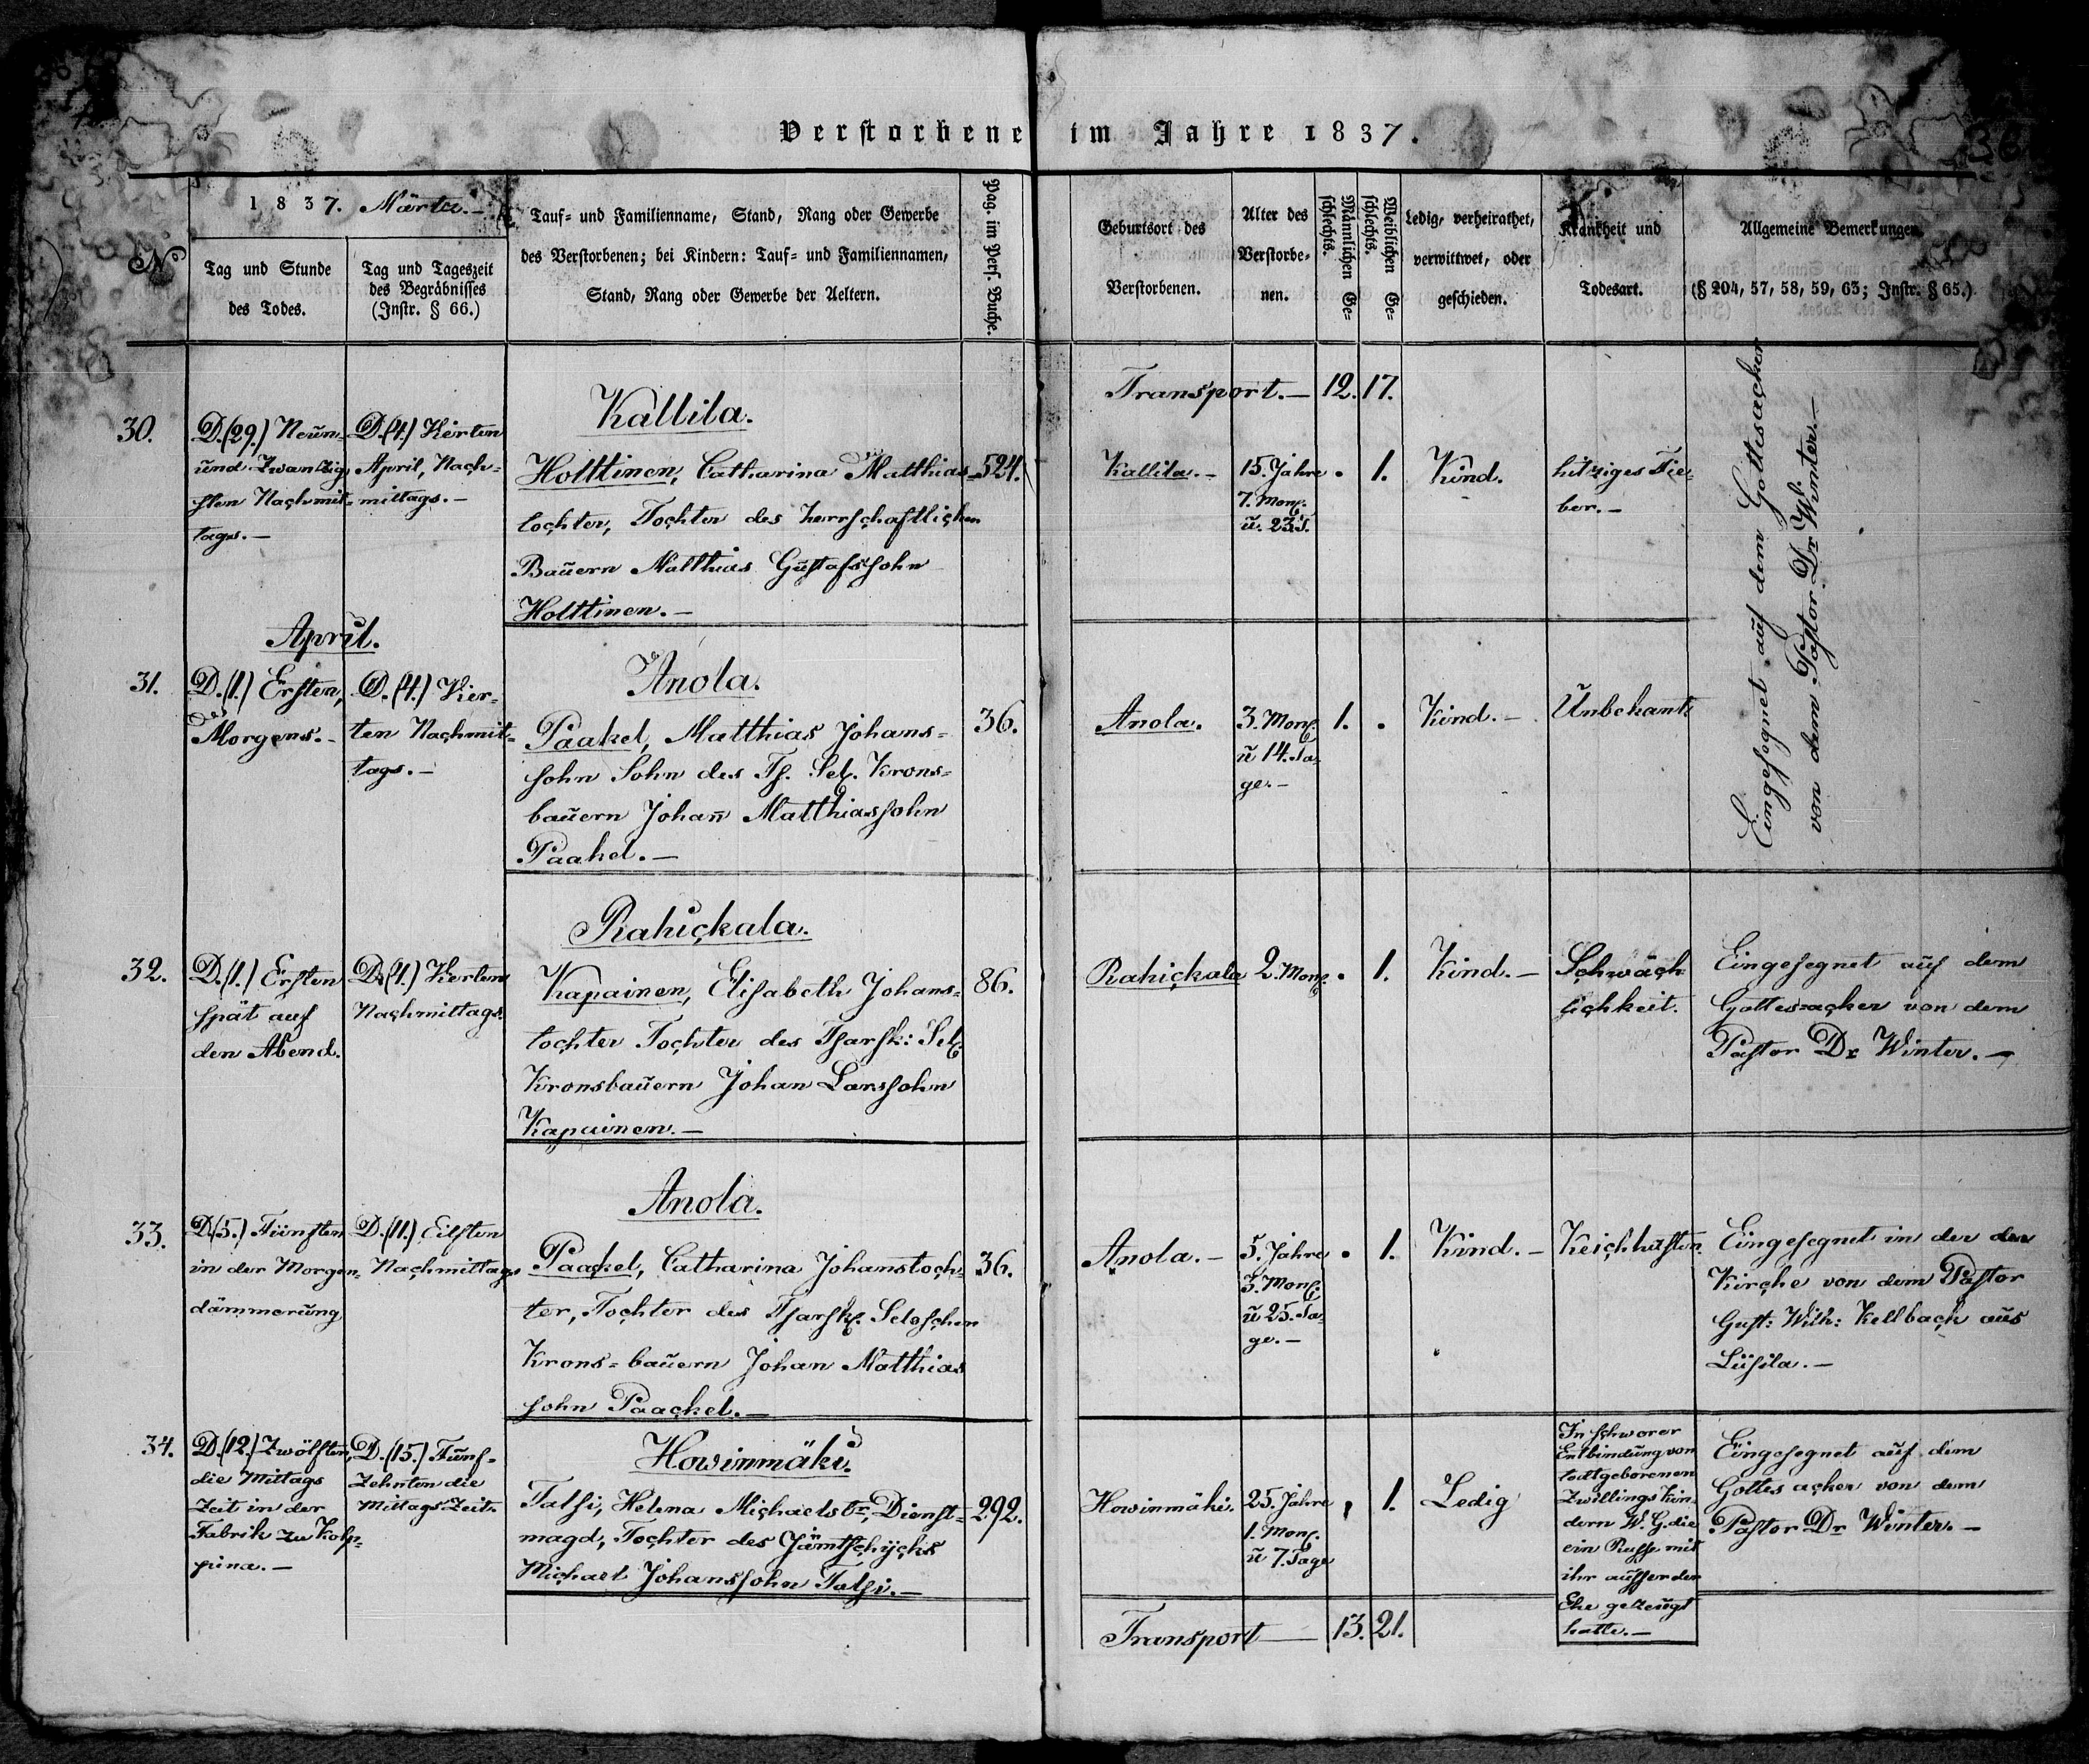 Verstorbene im Jahre 1837.
36
N°
1837. Märtz.
Tag und Stunde
des Todes.
Tag und Tageszeit
des Begräbnisses
(Instr. § 66.)
Tauf= und Familienname, Stand, Rang oder Gewerbe
des Verstorbenen; bei Kindern: Tauf= und Familiennamen,
Stand, Rang oder Gewerbe der Aeltern.
Pag. im Pers. Buche.
Geburtsort des
Verstorbenen.
Alter des
Verstorbe=
nen.
Männlichen Ge=
schlechts.
Weiblichen Ge=
schlechts.
Ledig, verheirathet,
verwittwet, oder
geschieden.
Krankheit und
Todesart.
Allgemeine Bemerkungen.
(§ 204, 57, 58, 59, 63; Instr. § 65.)
Transport.— 12. 17.
30.
D. (29.) Neün=
ünd Zwanzig
sten Nachmit=
tags.—
D. (4.) Vierten
April, Nach=
mittags.—
Kallila.
Holttinen, Catharina Matthias
tochter, Tochter des herrschaftlichen
Baüern Matthias Güstafssohn
Holttinen.—
524.
Kallila.—
15. Jahre
7. Mon.
ü. 23 T.
. 1.
Kind.
hitziges Fie=
ber.—
Eingesegnet auf dem Gottesacker
von dem Pastor Dr. Wl. Winter.—
April.
31.
D. (1.) Ersten,
des
Morgens.—
D. (4.) Vier=
ten Nachmit=
tags.—
Anola.
Paakel, Matthias Johans=
sohn Sohn des Ts. Sel. Krons=
baüern Johan̄ Matthiassohn
Paakel.—
36.
Anola.
3. Mon.
ü 14. Ta=
ge.—
1. .
Kind.—
Ünbekant
32.
D. (1.) Ersten
spät auf
den Abend.
D. (4.) Vierten
Nachmittags.
Rahickala.
Kapainen, Elisabeth Johans=
tochter Tochter des Tsarsk: Sel.
Kronsbaüern Johan Larssohn
Kapainen.—
86.
Rahickala
2. Mon.
. 1.
Kind.—
Schwäch
lichkeit.
Eingesegnet auf dem
Gottes=acker von dem
Pastor Dr Winter.—
33.
D. (5.) Fünften
in der Morgen=
dämmerüng
D. (11.) Eilften
Nachmittags
Anola.
Paackel, Catharina Johanstoch=
ter, Tochter des Tsarsk. Seloschen
Krons=baüern Johan Matthias
sohn Paackel.—
36.
Anola.—
5. Jahre
3. Mon.
ü 25. Ta=
ge.—
. 1.
Kind.—
Keichhüsten
Eingesegnet in der der
Kirche von dem Pastor
Gust: Wilh: Kellback aüs
Liisila.—
34.
D. (12.) Zwölften,
die Mittags
Zeit in der
Fabrik zu Kolp=
pina.—
D. (15.) Fünf=
Zehnten die
Mittags-Zeit.
Howinmäki.
Talsi, Helena Michaelstr., Dienst=
magd, Tochter des Jämtschücks
Michael Johanssohn Talsi.—
292.
Howinmäki.
25. Jahre
1. Mon.
ü 7. Tage
. 1.
Ledig
In schwerer
Entbindüng von
todtgeborenen
Zwillings Kin=
dern W. G. die
ein Russe mit
ihr ausser der
Ehe gezeügt
hatte.—
Eingesegnet aüf dem
Gottes acker von dem
Pastor Dr Winter.—
Transport — 13. 21.